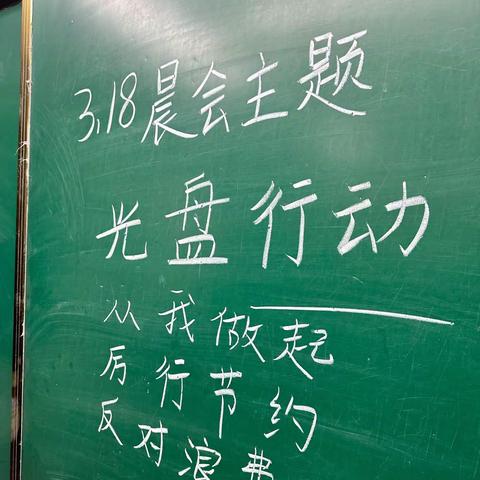 3.18晨会主题
光盘行动
从我做起
厉行节约
反对浪费